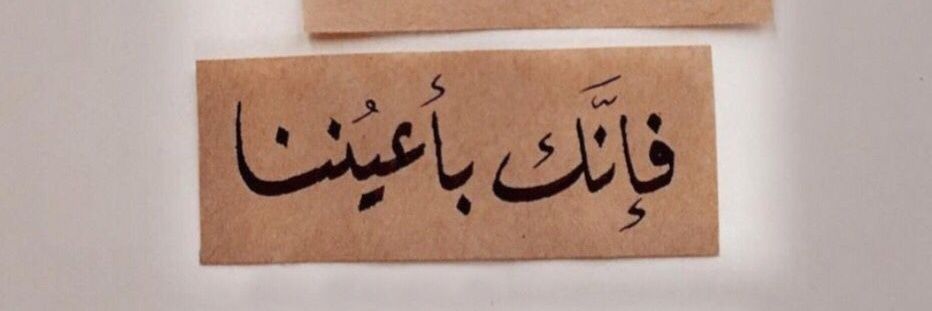 فإنَّك بأعيُننا